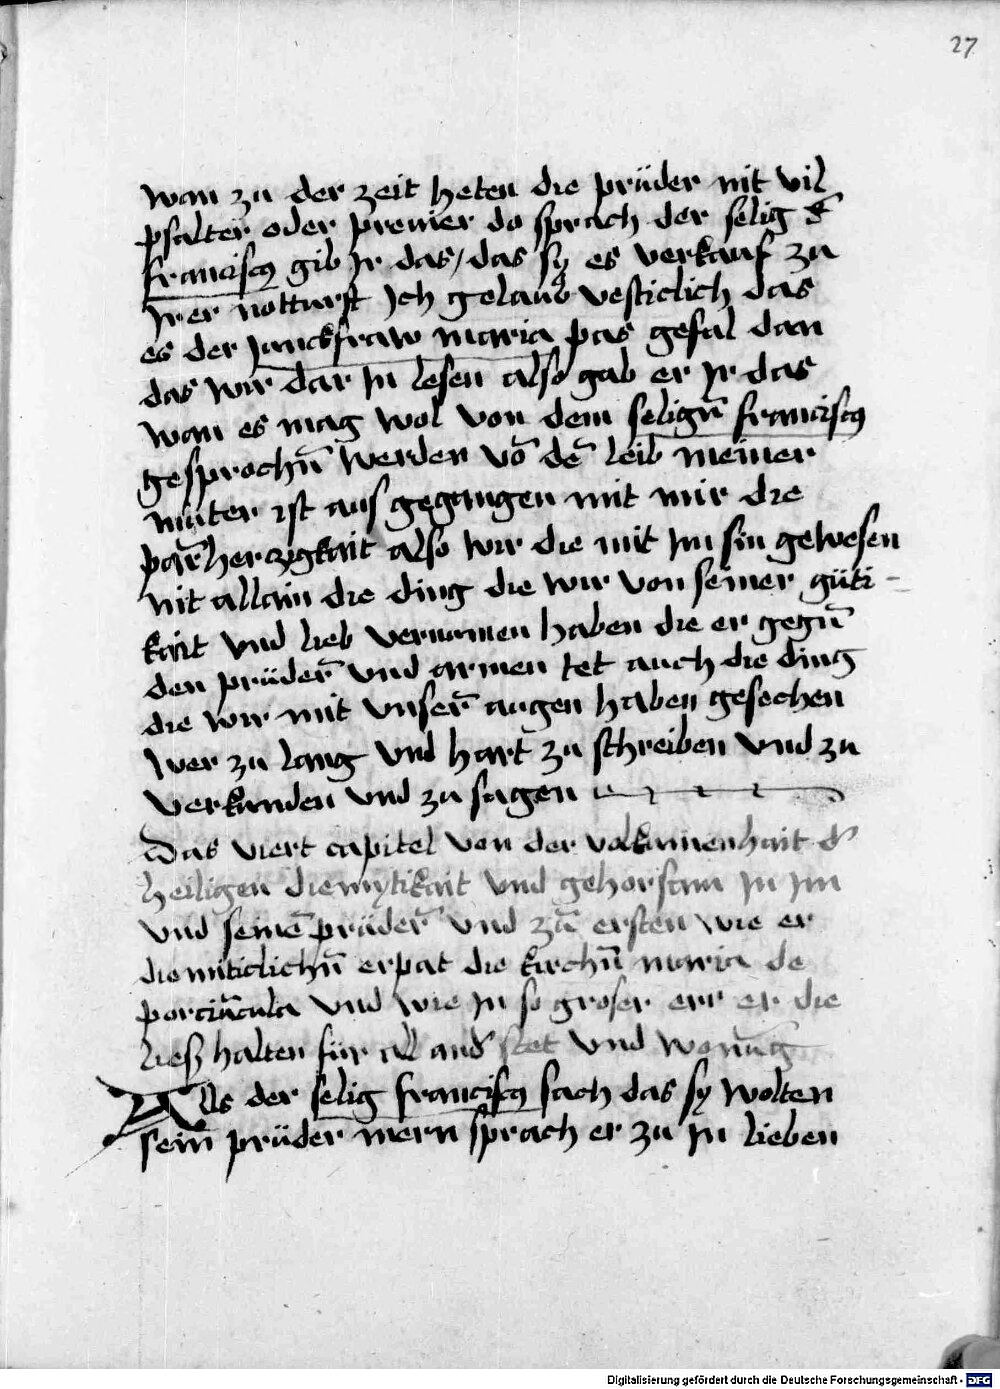 27
wan zu der zeit heten die prüder nit vil
psalter oder previer do sprach der selig S
franciscꝰ gib Ir das / das sy es verkauf zu
Irer notturft Ich gelaub vesticlich das
es der Junckfraw maria pas gefal dan
das wir dar In lesen also gab er Ir das
wan es mag wol von dem seligñ franciscꝰ
gesprochñ werden võ dẽ leib meiner
muter ist aus gegangen mit mir die
parherczigkait also wir die mit Im sin gewesen
nit allain die ding die wir von seiner güti-
kait vnd lieb vernomen haben die er gegñ
den prüdeř vnd armen tet auch die ding
die wir mit vnseř augen haben gesechen
wer zu lang vnd hart zu schreiben vnd zu
verkunden vnd zu sagen
Das viert capitel von der volkumenhait d'
heiligen diemytikait vnd gehorsam In Im
vnd seinẽ prüdeř vnd zũ ersten wie er
diemüticlichñ erpat die kirchñ maria de
porciũcula vnd wie In so groser err er die
ließ halten für all and' stet vnd wonũg
Als der selig franciscꝰ sach das sy wolten
sein prüder mern sprach er zu In lieben
Digitalisierung gefördert durch die Deutsche Forschungsgemeinschaft - DFG